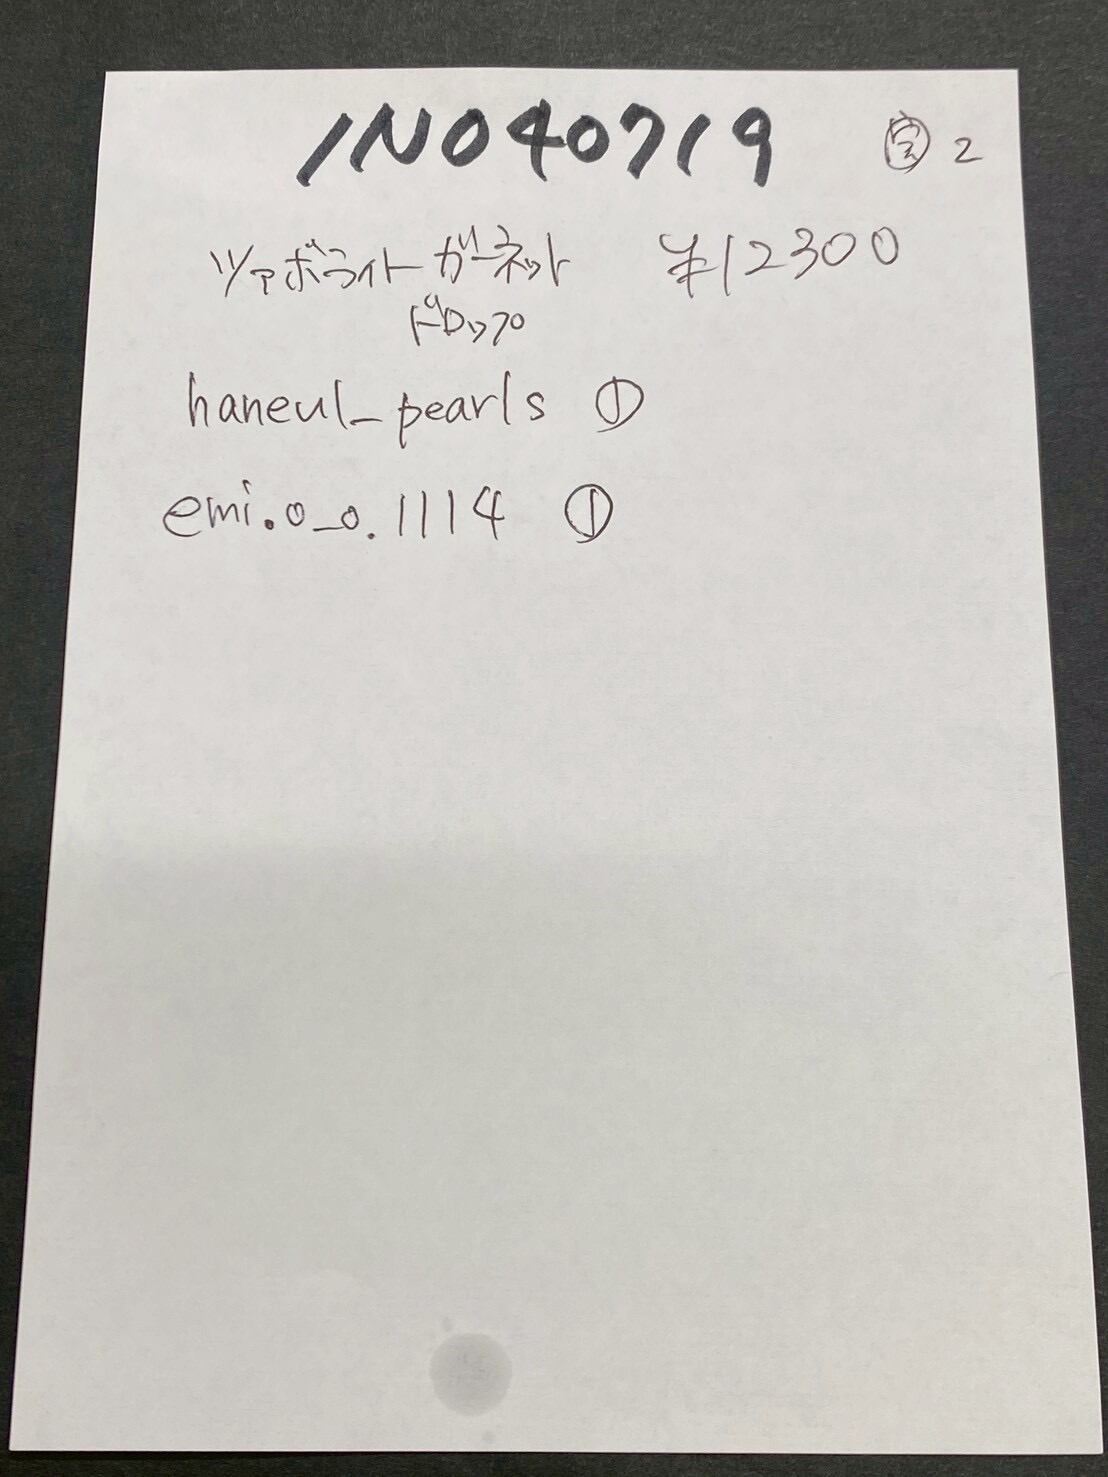 INO40719
2
ツァボライトガーネット ¥12300
ドロップ
haneul_pearls ①
emi.o_o.1114 ①